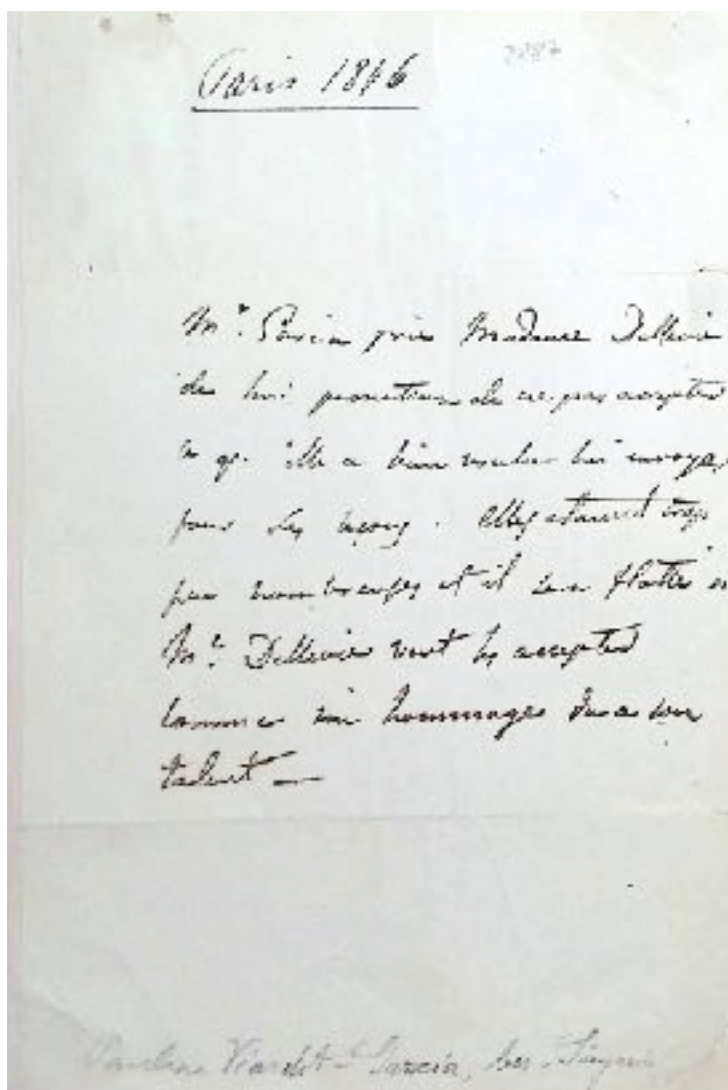 Paris 1846
2287
Mr. Garcia prie Madame Dellevie
de lui permettre de ne pas accepter
ce qu'elle a bien voulu lui envoyer
pour les leçons. Elles étaient trop
peu nombreuses et il sera flatté si
Me. Dellevie veut les accepter
comme un hommage du a son
talent —
Pauline Viardot-Garcia, ber.